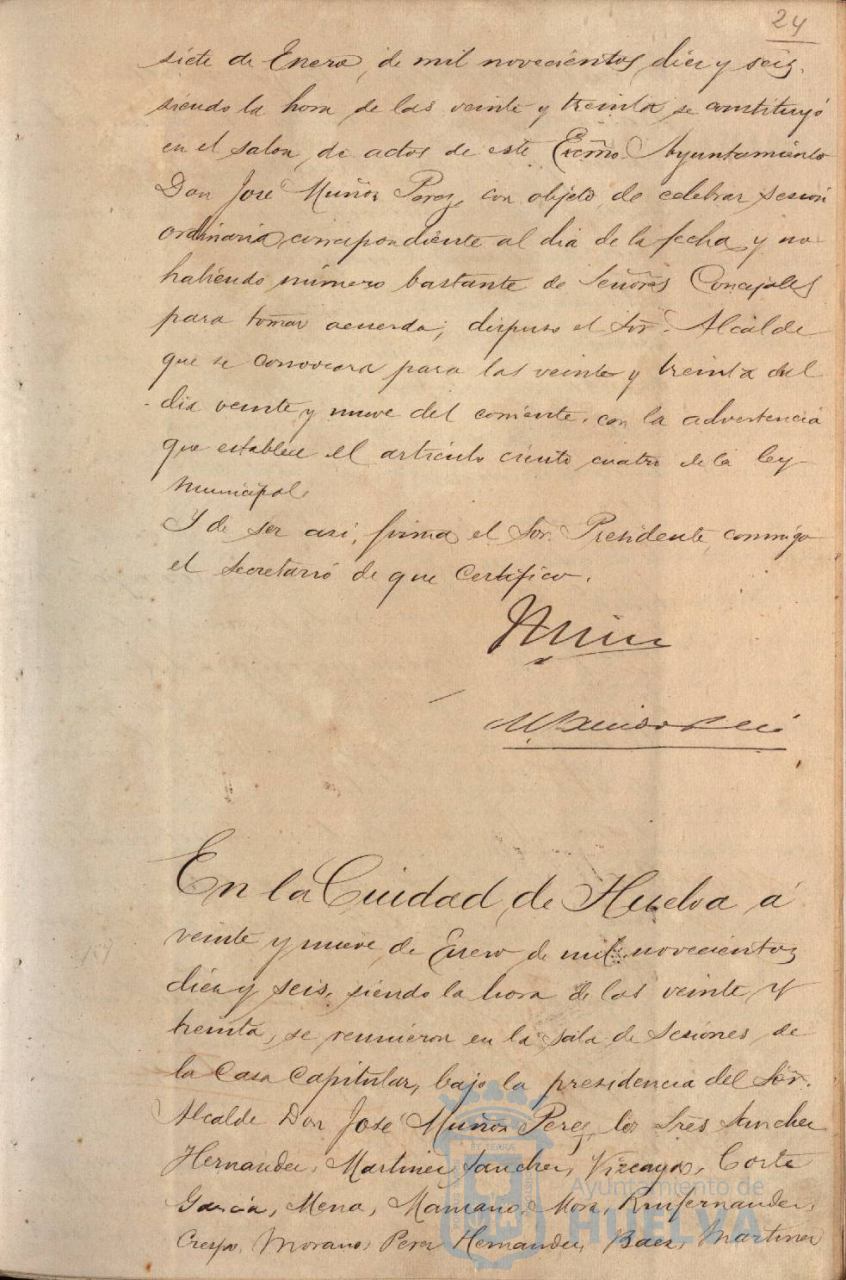 24
siete de Enero, de mil novecientos diez y seis,
siendo la hora de las veinte y treinta se constituyó
en el salon de actos de este Excmo. Ayuntamiento
Don José Muñoz Perez, con objeto de celebrar sesion
ordinaria correspondiente al dia de la fecha, y no
habiendo número bastante de Señores Concejales
para tomar acuerdo, dispuso el Sor. Alcalde
que se convocara para las veinte y treinta del
dia veinte y nueve del corriente, con la advertencia
que establece el articulo ciento cuatro de la ley
municipal.
Y de ser asi, firma el Sor. Presidente, conmigo
el Secretario de que Certifico.
En la Ciudad de Huelva á
veinte y nueve de Enero de mil novecientos
diez y seis, siendo la hora de las veinte y
treinta, se reunieron en la sala de Sesiones de
la Casa Capitular, bajo la presidencia del Sor.
Alcalde Don José Muñoz Perez, los Sres Sanchez
Hernandez, Martinez Sanchez, Vizcaya, Corte
Garcia, Mena, Manzano, Mora, Ruifernandez,
Crespo, Morano, Perez Hernandez, Baez, Martinez
Ayuntamiento de
HUELVA